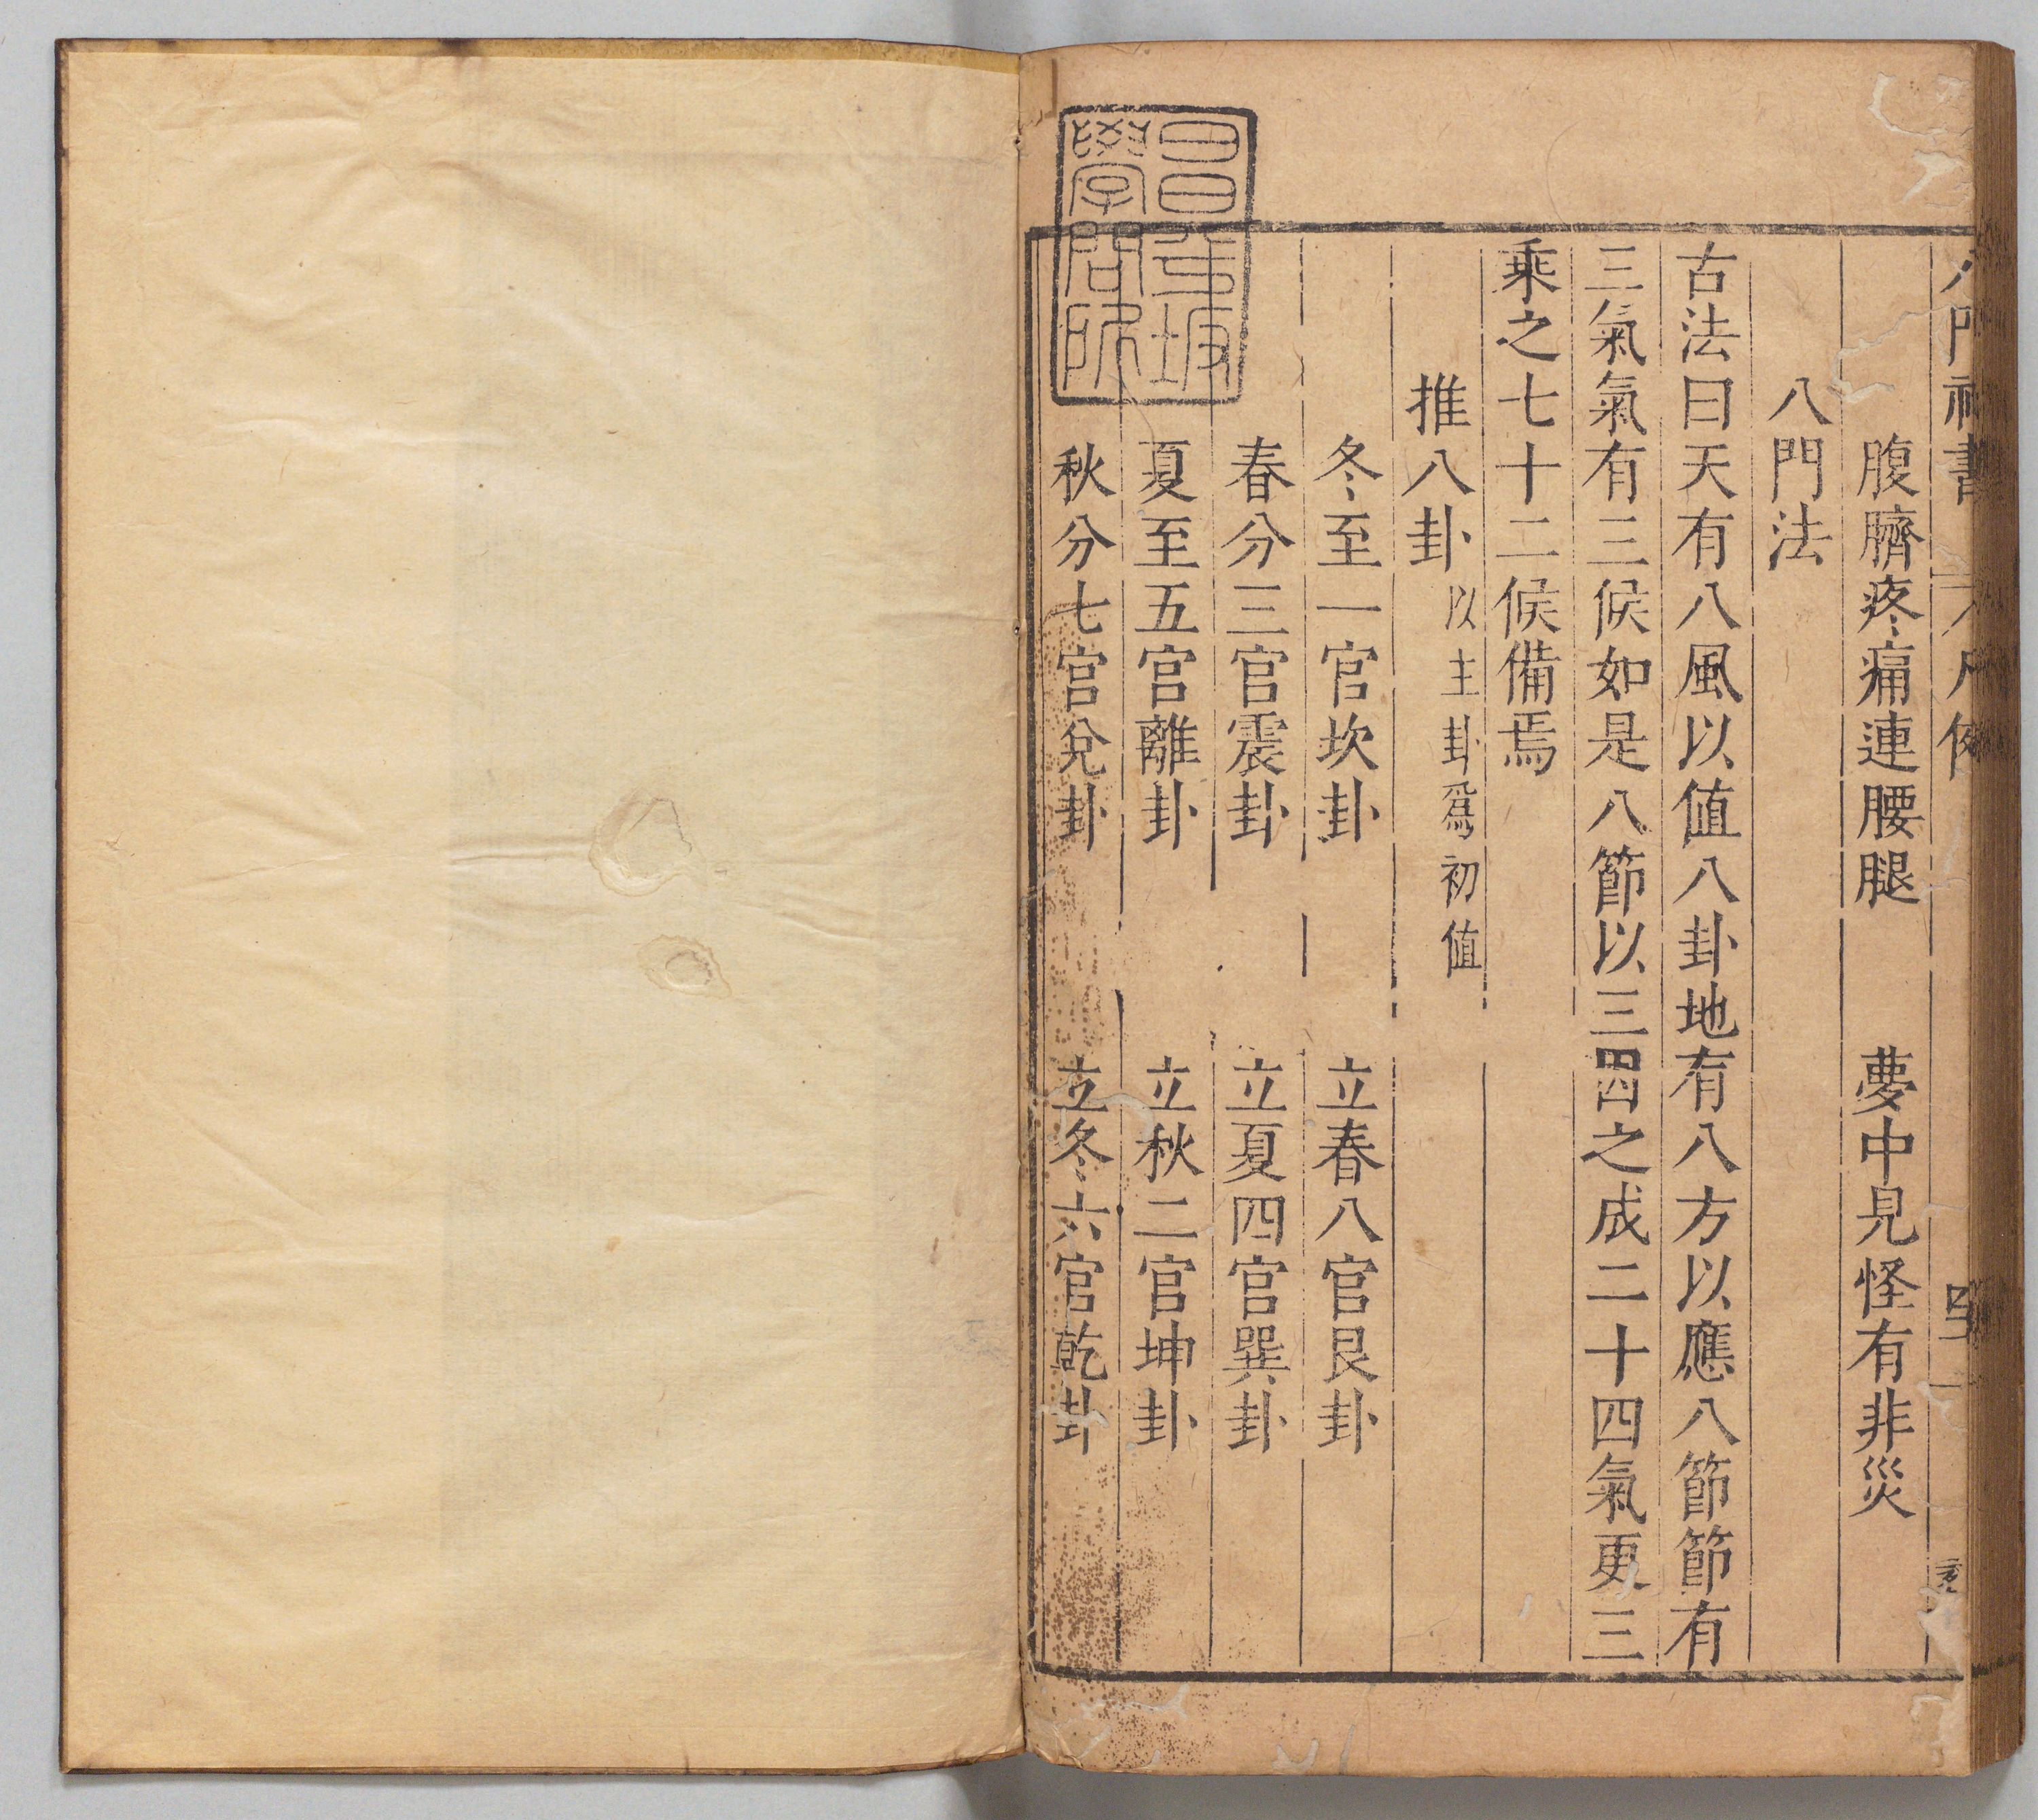 腹臍疼痛連腰腿　夢中見怪有非災
八門法
古法曰天有八風以値八卦地有八方以應八節節有
三氣氣有三候如是八節以三因之成二十四氣更三
乘之七十二候備焉
推八卦 以主卦爲初値
冬至一官坎卦　立春八官艮卦
春分三官震卦　立夏四官巽卦
夏至五宫離卦　立秋二官坤卦
秋分七宫兌卦　立冬六官乾卦